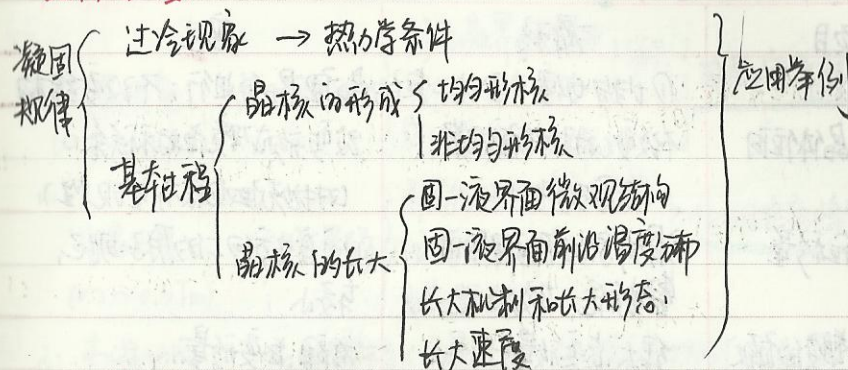 凝固
规律
过冷现象 → 热力学条件
基本过程
晶核的形成
均匀形核
非均匀形核
晶核的长大
固一液界面微观结构
固一液界面前沿温度分布
长大机制和长大形态
长大速度
应用举例